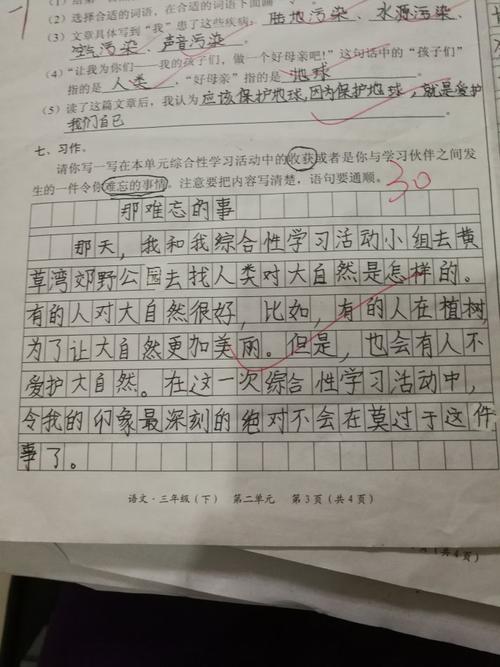 (2) 选择合适的词语,在合适的词语下面画
陆地污染、水源污染、
(3) 文章具体写到“我”患了这些疾病:
空气污染、声音污染。
(4)“让我为你们——我的孩子们,做一个好母亲吧!”这句话中的“孩子们”
指的是 人类 ,“好母亲”指的是 地球
(5) 读了这篇文章后,我认为 应该保护地球,因为保护地球,就是爱护
我们自己
七、习作。
请你写一写在本单元综合性学习活动中的收获或者是你与学习伙伴之间发
生的一件令你难忘的事情。注意要把内容写清楚,语句要通顺。
30
那难忘的事
那天,我和我综合性学习活动小组去黄
草湾郊野公园去找人类对大自然是怎样的。
有的人对大自然很好,比如,有的人在植树,
为了让大自然更加美丽。但是,也会有人不
爱护大自然。在这一次综合性学习活动中,
令我的印象最深刻的绝对不会在莫过于这件
事了。
语文·三年级(下) 第二单元 第3页(共4页)
(共4页)